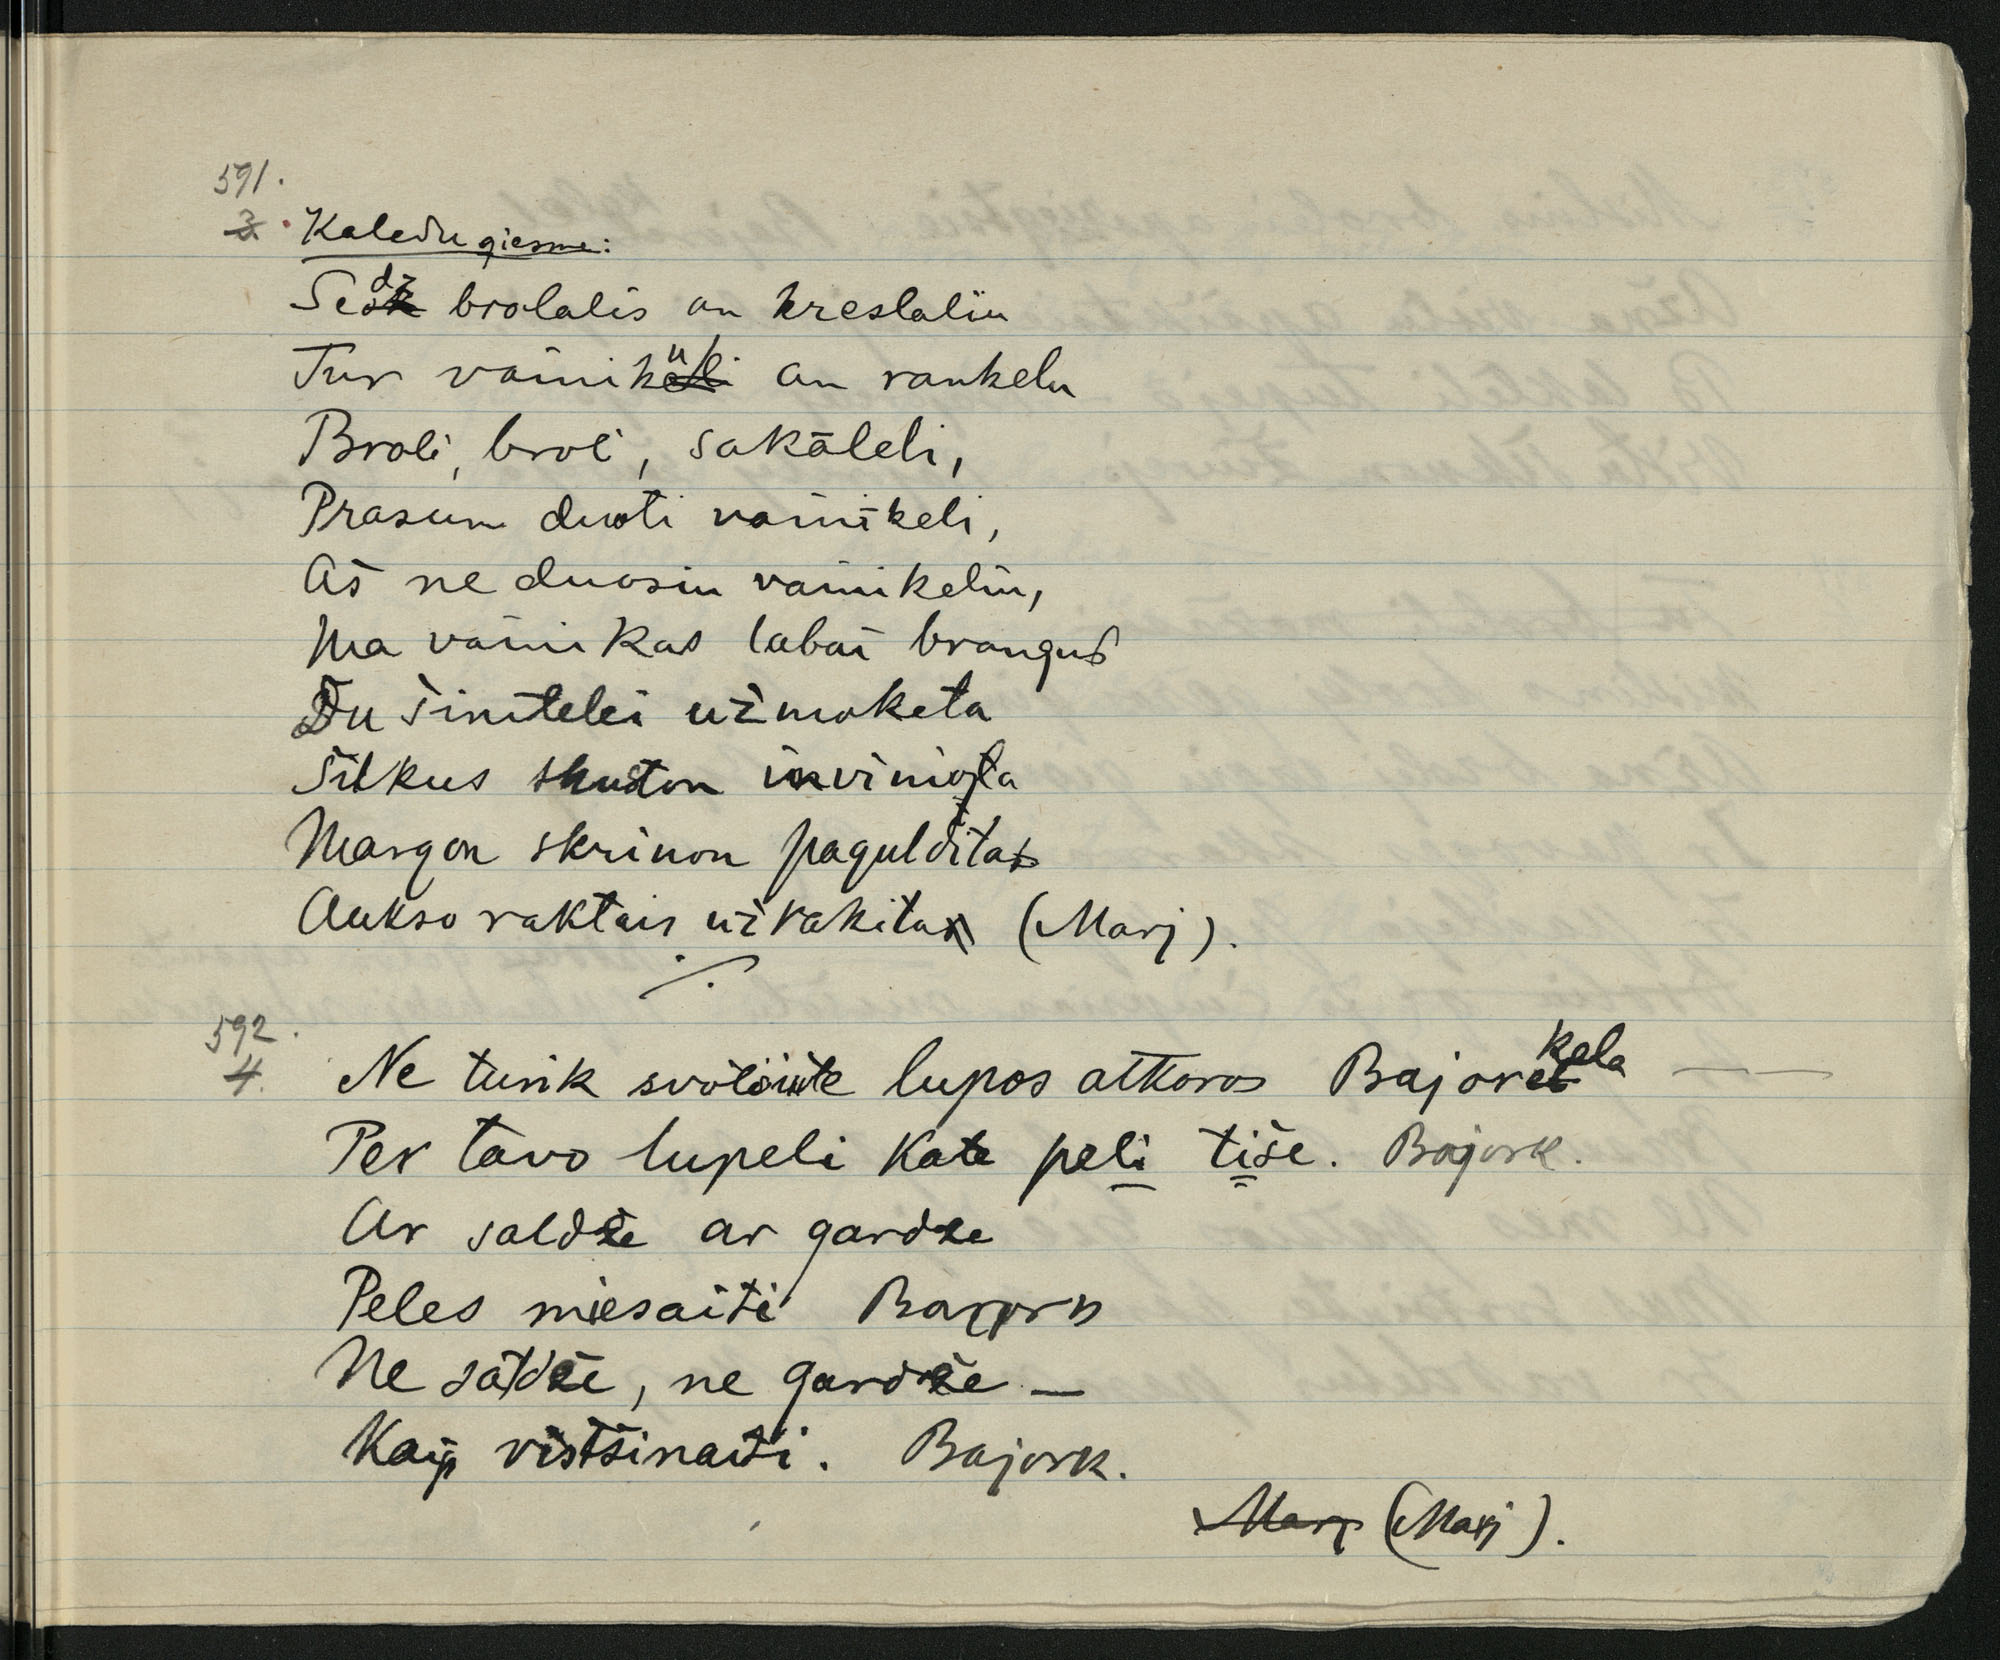 591.
3. Kaledu giesme:
Sedž brolalis an kreslaliu
Tur vainiku an rankelu
Broli, broli, sakāleli,
Prasum duoti vainikeli,
Aš ne duosiu vainikeliu,
Ma vainikas labai brangus
Du šimtelei užmoketa
Šilkus skuston inviniota
Margon skrinon paguldita
Aukso raktais užrakita (Marj).
592.
4. Ne turik lupos atkoros Bajorkela
Per tavo lupeli kate peli tiše. Bajork.
Ar saldže ar gardže
Peles miesaiti Bajork
Ne saldže, ne gardže –
Kaip vistšinaiti. Bajork.
Marj (Marj).